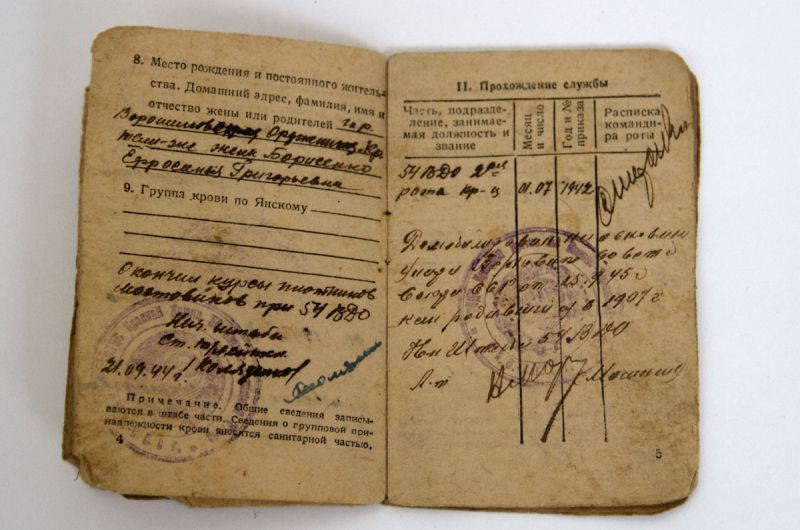 8. Место рождения и постоянного житель-
ства. Домашний адрес, фамилия, имя и
отчество жены или родителей гор.
там-же жена Борисенко
Ефросинья Григорьевна
9. Группа крови по Янскому
Окончил курсы плотников
мостовиков при 54 ВДО
Нач. штаба
Ст.
21.09.44 г.
Примечание. Общие сведения записы-
ваются в штабе части. Сведения о групповой при-
надлежности крови вносятся санитарной частью.
4
11. Прохождение службы
Часть, подразде-
ление, занимае-
мая должность и
звание
Месяц
и число
Год и №
приказа
Расписка
команди-
ра роты
54 ВДО 2ая
рота кр-ц 01.07 1942
Демобилизован на основан
Указа Верховн. Совета
Союза ССР от 25.9.45 г
как родивший с. в 1907 г
Нач Штаба 54 ВДО
Л-т
5